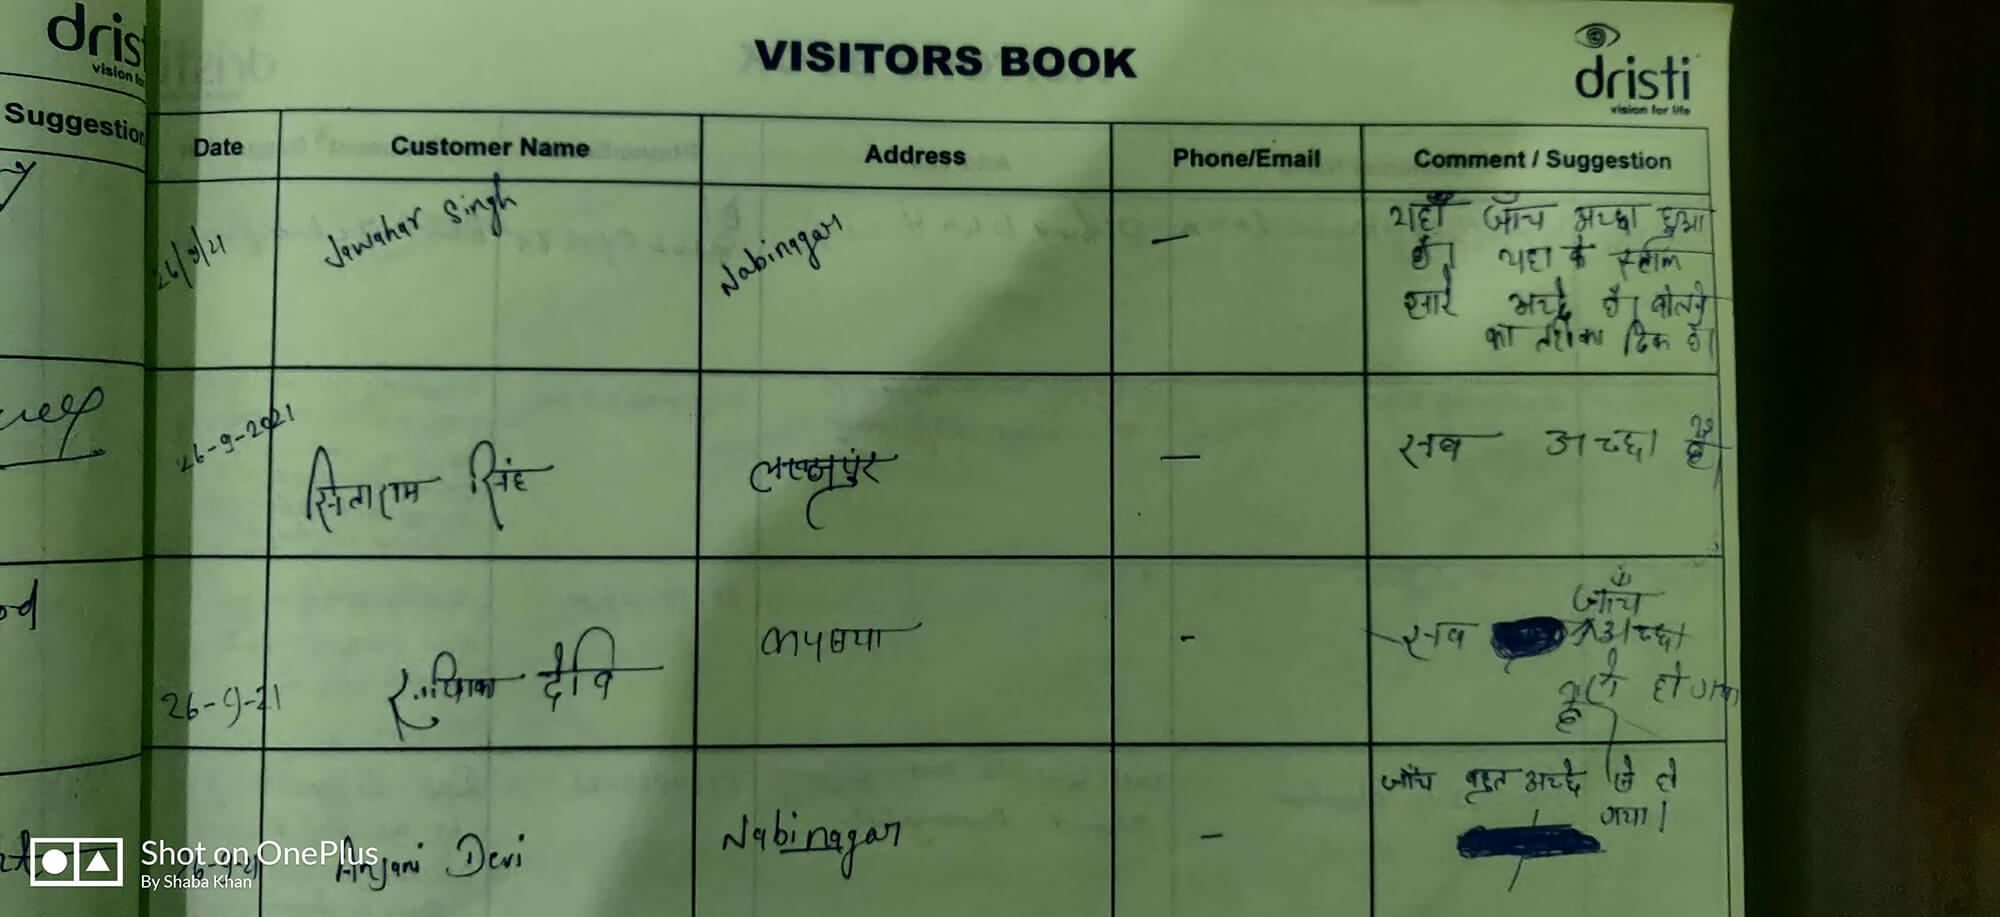 dris
vision fo
Suggestion
VISITORS BOOK
dristi
vision for life
Date
Customer Name
Address
Phone/Email
Comment / Suggestion
26/9/21
Jawahar Singh
Nabinagar
—
यहाँ जाँच अच्छा हुआ
है। यहा के स्टाल
सारे अच्छे है। बोलने
का तरीका ठिक है।
26-9-2021
सिताराम सिंह
—
सब अच्छा है।
26-9-21
देवि
-
सब जाँच अच्छा
से हो गया
है
26-9-21
Anjani Devi
Nabinagar
-
जाँच बहुत अच्छे से हो
गया।
Shot on OnePlus
By Shaba Khan